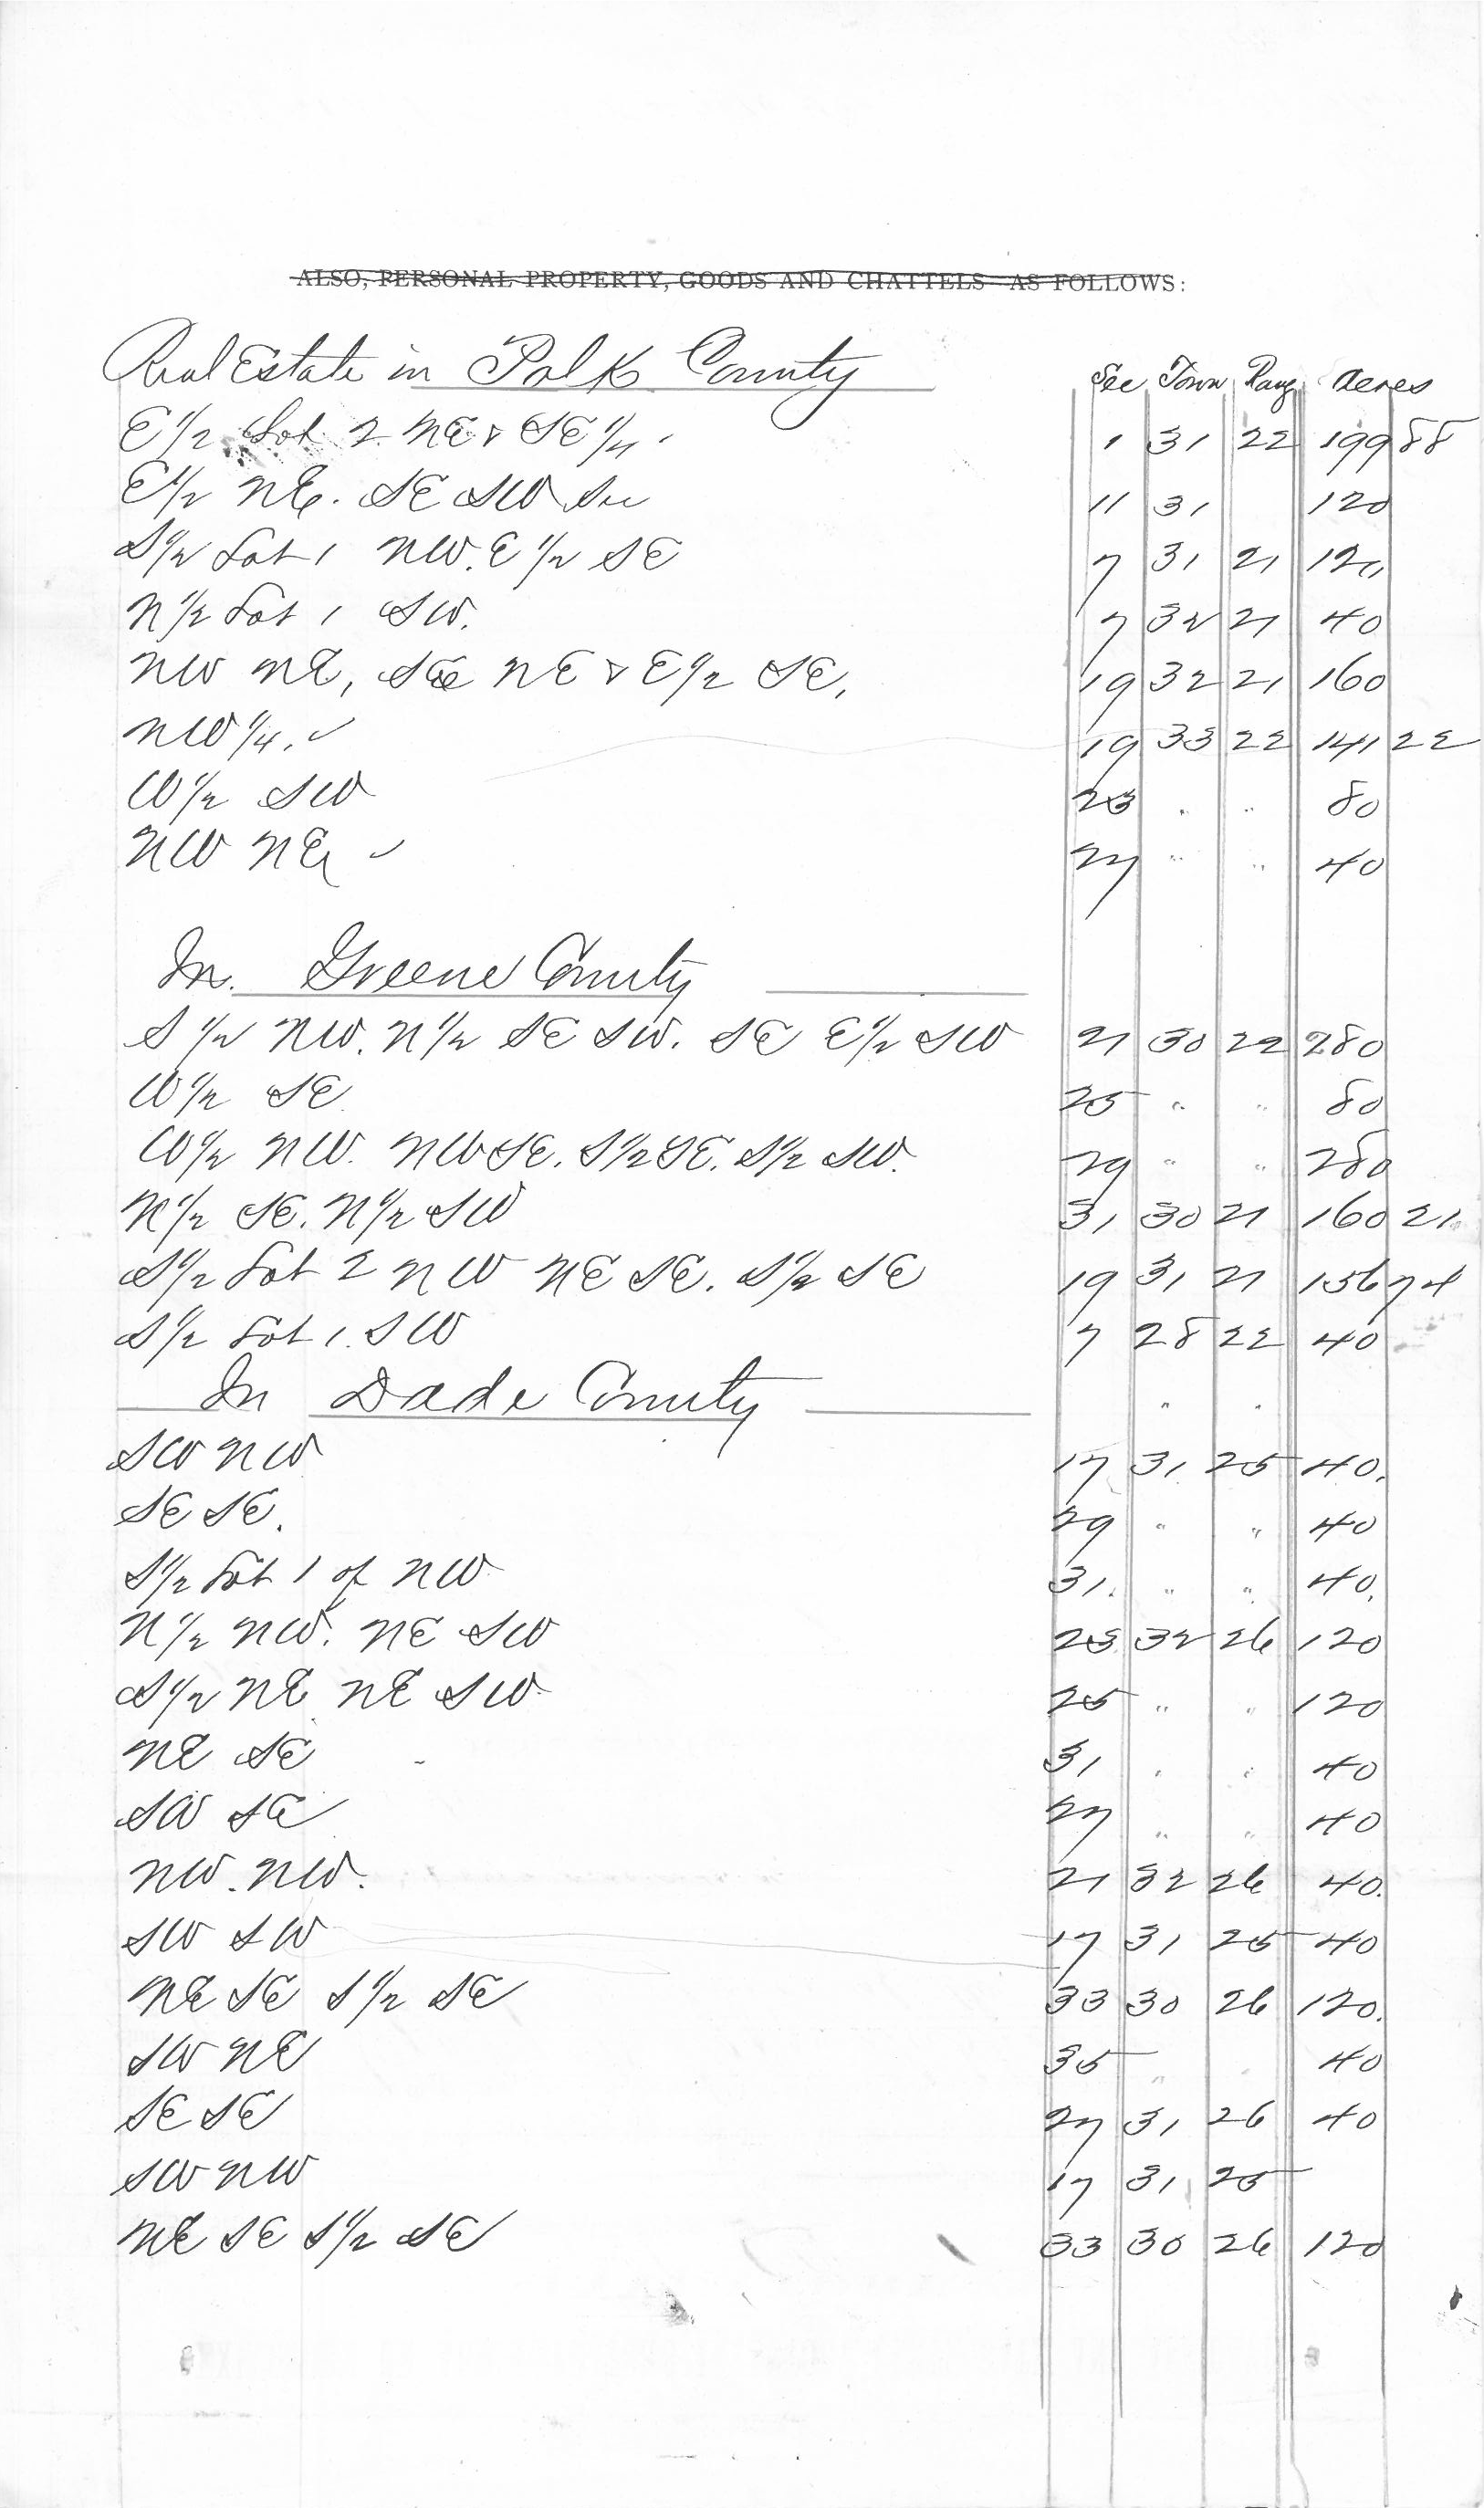 ALSO, PERSONAL PROPERTY, GOODS AND CHATTELS AS FOLLOWS:
Real Estate in Polk County See Town Rang Acres
E 1/2 Lot 2 NE & SE 1/4 1 31 22 199 88
E 1/2 NE. SE SW Sec 11 31 120
S 1/2 Lot 1 NW. E 1/2 SE 7 31 21 120
N 1/2 Lot 1 SW. 7 32 21 40
NW NE, SE NE & E 1/2 SE, 19 32 21 160
NW 1/4. ✓ 19 33 22 141 22
W 1/2 SW 23 . .. 80
NW NE ✓ 27 " " 40
In Greene County
S 1/2 NW. N 1/2 SE SW. SE E 1/2 SW 21 30 22 280
W 1/2 SE 25 " " 80
W 1/2 NW. NW SE. S 1/2 SE. S 1/2 SW. 29 " " 280
N 1/2 SE. N 1/2 SW 31 30 21 160 21
S 1/2 Lot 2 NW NE SE. S 1/2 SE 19 31 21 156 74
S 1/2 Lot 1. SW 7 28 22 40
In Dade County " "
SW NW 17 31 25 40.
SE SE. 29 " " 40
S 1/2 Lot 1 of NW 31. " " 40.
N 1/2 NW. NE SW 23 32 26 120
S 1/2 NE NE SW 25 " " 120
NE SE 31 " " 40
SW SE 27 " " 40
NW. NW. 21 32 26 40.
SW SW 17 31 25 40
NE SE S 1/2 SE 33 30 26 120.
SW NE 35 " 40
SE SE 27 31 26 40
SW NW 17 31 25
NE SE S 1/2 SE 33 30 26 120